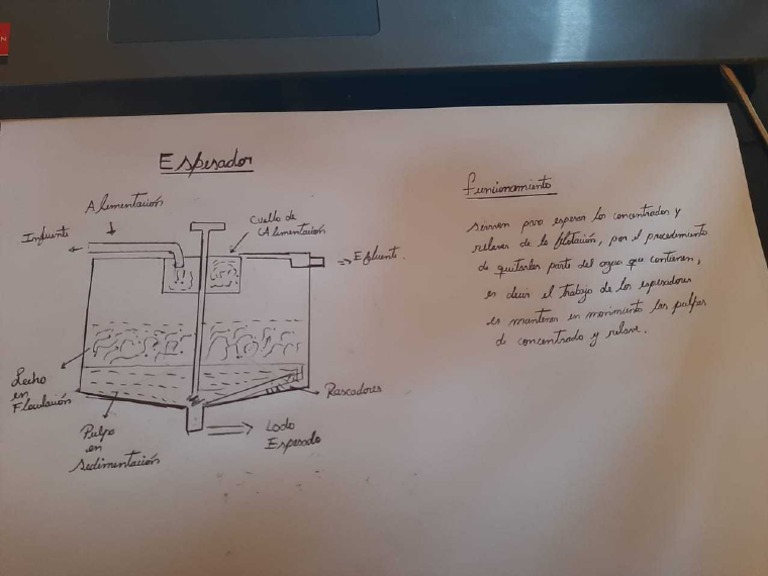 Espesador
Alimentación
Influente
Cuello de
Alimentación
Efluente.
Lecho
en
Floculación
Pulpa
en
Sedimentación
Rascadores
Lodo
Espesado
Funcionamiento
sirven para espesar los concentrados y
relaves de la flotación, por el procedimiento
de quitarles parte del agua que contienen,
es decir el trabajo de los espesadores
es mantener en movimiento las pulpas
de concentrado y relave.